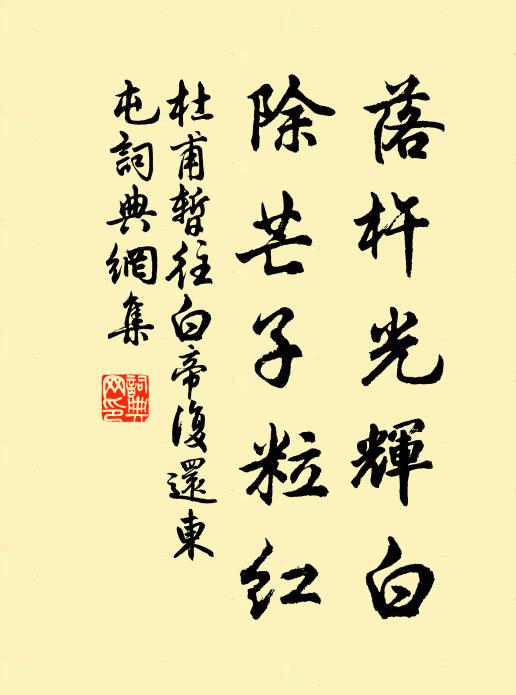 落杵光輝白
除芒子粒红
杜甫暫往白帝復還東
屯詞典網集
詞典網印